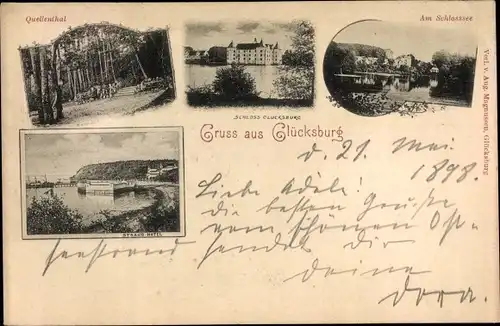 Quellenthal
Am Schlosssee
SCHLOSS GLÜCKSBURG
Gruss aus Glücksburg
STRAND HOTEL
Verl. v. Aug. Magnussen, Glücksburg
d. 21. Mai 1898.
Liebe Adele!
die besten Grüße
vom schönen Ost-
seestrand sendet dir
deine
Dora.